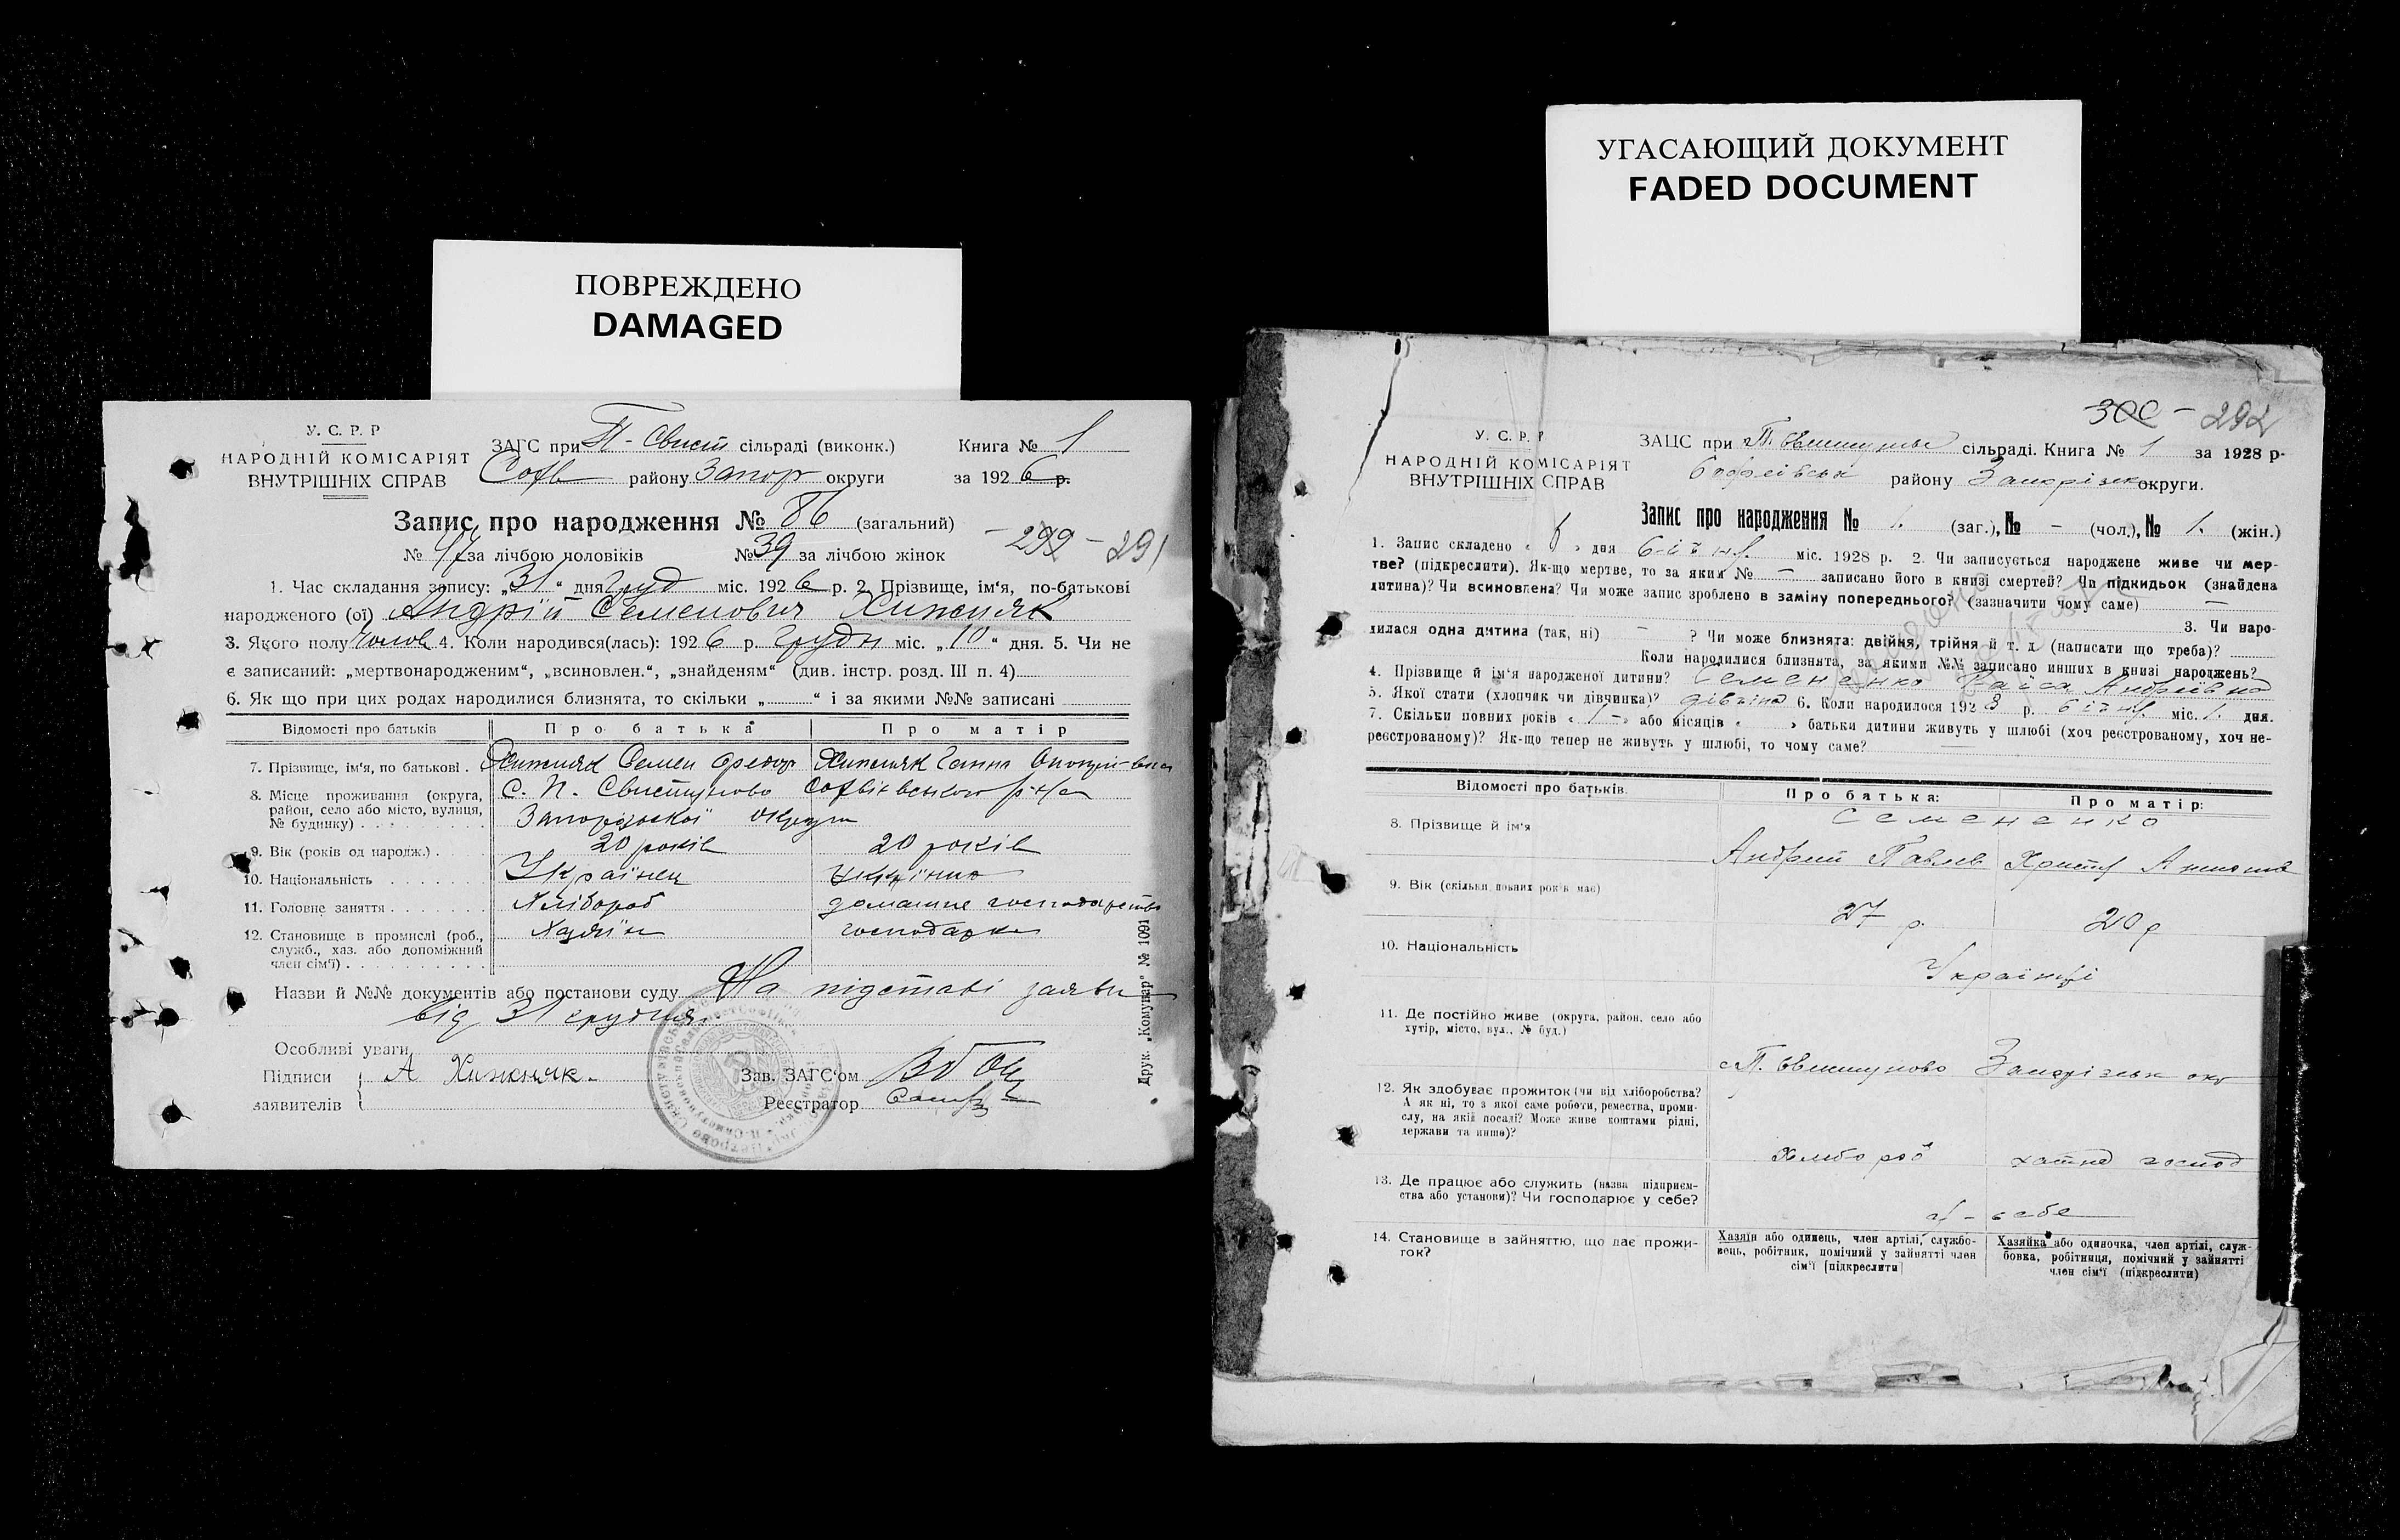 ПОВРЕЖДЕНО
DAMAGED
У. С. Р. Р
НАРОДНІЙ КОМІСАРІЯТ
ВНУТРІШНІХ СПРАВ
ЗАГС при П-Свист сільраді (виконк.) Книга № 1
Софв району Запор округи за 1926 р.
Запис про народження № 86 (загальний)
№ 47 за лічбою чоловіків № 39 за лічбою жінок
299 - 291
1. Час складання запису: „31“ дня груд міс. 1926 р. 2. Прізвище, ім‘я, по-батькові
народженого (ої) Андрій Семенович Хижняк
3. Якого полу чолов 4. Коли народився(лась): 1926 р. грудн міс. „10“ дня. 5. Чи не
є записаний: „мертвонародженим“, „всиновлен.“, „знайденям“ (див. інстр. розд. III п. 4)
6. Як що при цих родах народилися близнята, то скільки „ “ і за якими №№ записані
Відомості про батьків Про батька Про матір
7. Прізвище, ім‘я, по батькові . Хижняк Семен Федор Хижняк Ганна
8. Місце проживання (округа, район, село або місто, вулиця, № будинку) С. П. Свистуново Софіївського р-на
Запорізької округи
9. Вік (років од народж.) . 20 років 20 років
10. Національність Українец українка
11. Головне заняття Хлібороб домашне господарство
12. Становище в промислі (роб., служб., хаз. або допоміжний член сім‘ї) Хазяїн господарка
Назви й №№ документів або постанови суду На підставі заяви
від 31 грудня.
Особливі уваги
Підписи заявителів А Хижняк.
Зав. ЗАГС‘ом
Реєстратор
Друк. „Комунар“ № 1091
УГАСАЮЩИЙ ДОКУМЕНТ
FADED DOCUMENT
300 - 292
У. С. Р. Р
НАРОДНІЙ КОМІСАРІЯТ
ВНУТРІШНІХ СПРАВ
ЗАЦС при сільраді. Книга № 1 за 1928 р.
Софіївськ району Запорізьк округи.
Запис про народження № 1. (заг.), № - (чол.), № 1. (жін.)
1. Запис складено « » дня січня міс. 1928 р. 2. Чи записується народжене живе чи мер-
тве? (підкреслити). Як-що мертве, то за яким № — записано його в книзі смертей? Чи підкидьок (знайдена
дитина)? Чи всиновлена? Чи може запис зроблено в заміну попереднього? (зазначити чому саме) —
3. Чи наро-
дилася одна дитина (так, ні) - ? Чи може близнята: двійня, трійня й т. д. (написати що треба)?
Коли народилися близнята, за якими №№ записано инших в книзі народжень?
4. Прізвище й ім‘я народженої дитини? Семененко Раїса Андріївна
5. Якої стати (хлопчик чи дівчинка)? дівчина 6. Коли народилося 1928 р. січня міс. 1. дня.
7. Скільки повних років « 1 » або місяців « » батьки дитини живуть у шлюбі (хоч реєстрованому, хоч не-
реєстрованому)? Як-що тепер не живуть у шлюбі, то чому саме? —
Відомості про батьків. Про батька: Про матір:
8. Прізвище й ім‘я Семененко
Андрий Павлов
9. Вік (скільки повних років має) 27 р. 20 р
10. Національність Українці
11. Де постійно живе (округа, район, село або хутір, місто, вул., № буд.)
с П. Свистуново Запорізьк окр
12. Як здобуває прожиток (чи від хліборобства? А як ні, то з якої саме роботи, ремества, промислу, на якій посаді? Може живе коштами рідні, держави та инше)?
Хлибороб хатнє господ
13. Де працює або служить (назва підприємства або установи)? Чи господарює у себе?
у - себе
14. Становище в зайняттю, що дає прожиток?
Хазяїн або одинець, член артілі, службовець, робітник, помічний у зайнятті член сім‘ї [підкреслити]
Хазяйка або одиночка, член артілі, службовка, робітниця, помічний у зайнятті член сім‘ї (підкреслити)